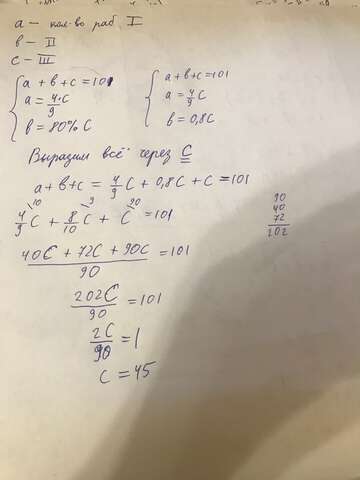 a — кол-во раб. I
b — II
c — III
a + b + c = 101
a = 4/9 · C
b = 80% C
a + b + c = 101
a = 4/9 C
b = 0,8C
Выразим всё через C
a + b + c = 4/9 C + 0,8C + C = 101
4/9 \10 C + 8/10 \9 C + C \90 = 101
90
40
72
202
40C + 72C + 90C / 90 = 101
202C / 90 = 101
2C / 90 = 1
C = 45